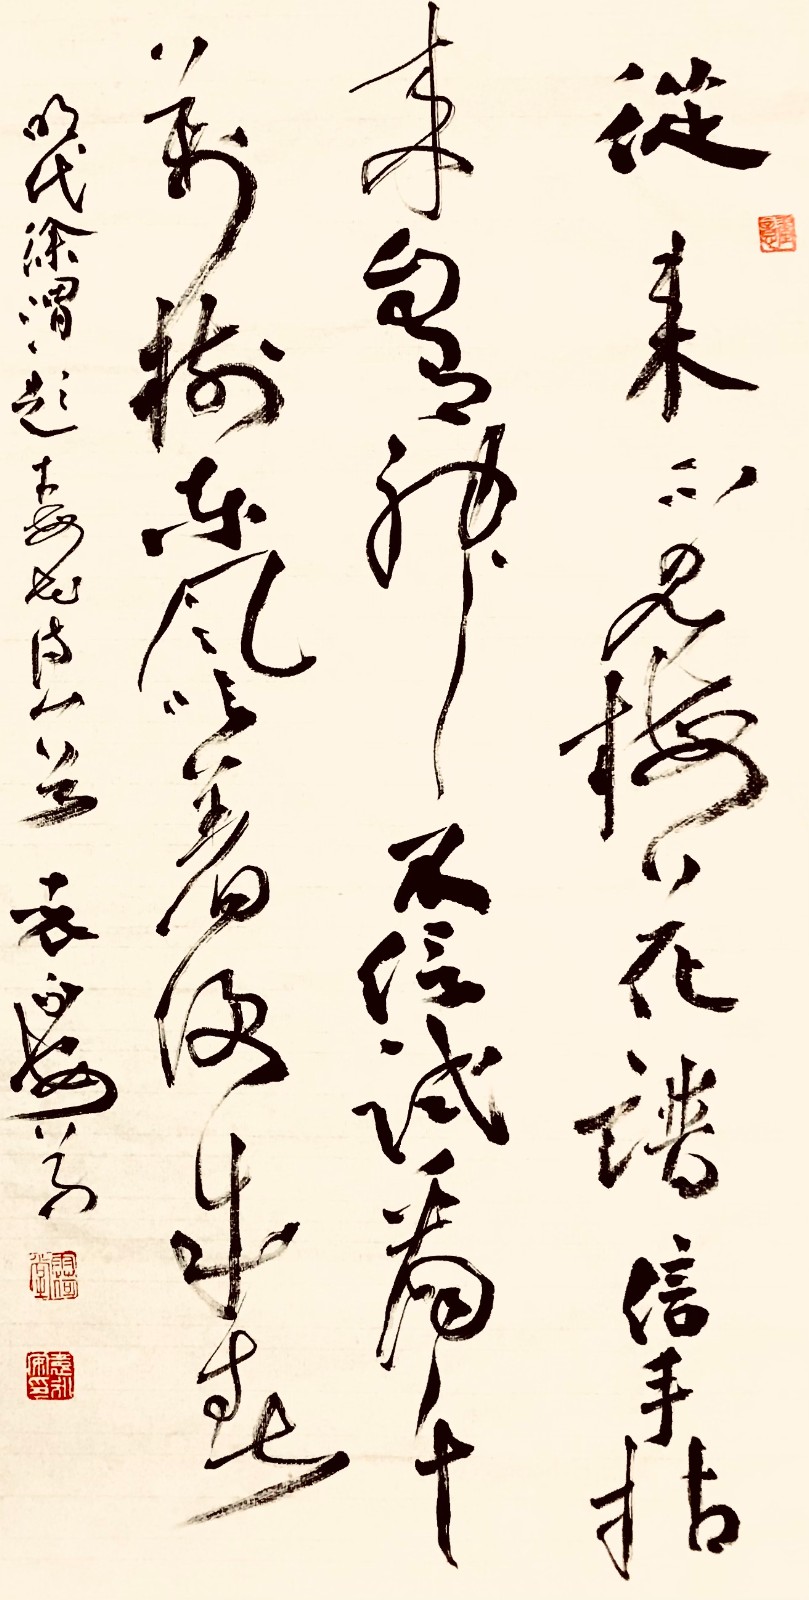 從來不見梅花譜信手拈
来自有神不信試看千
萬樹東風吹着便成春
明代徐渭題畫梅花詩一首 袁